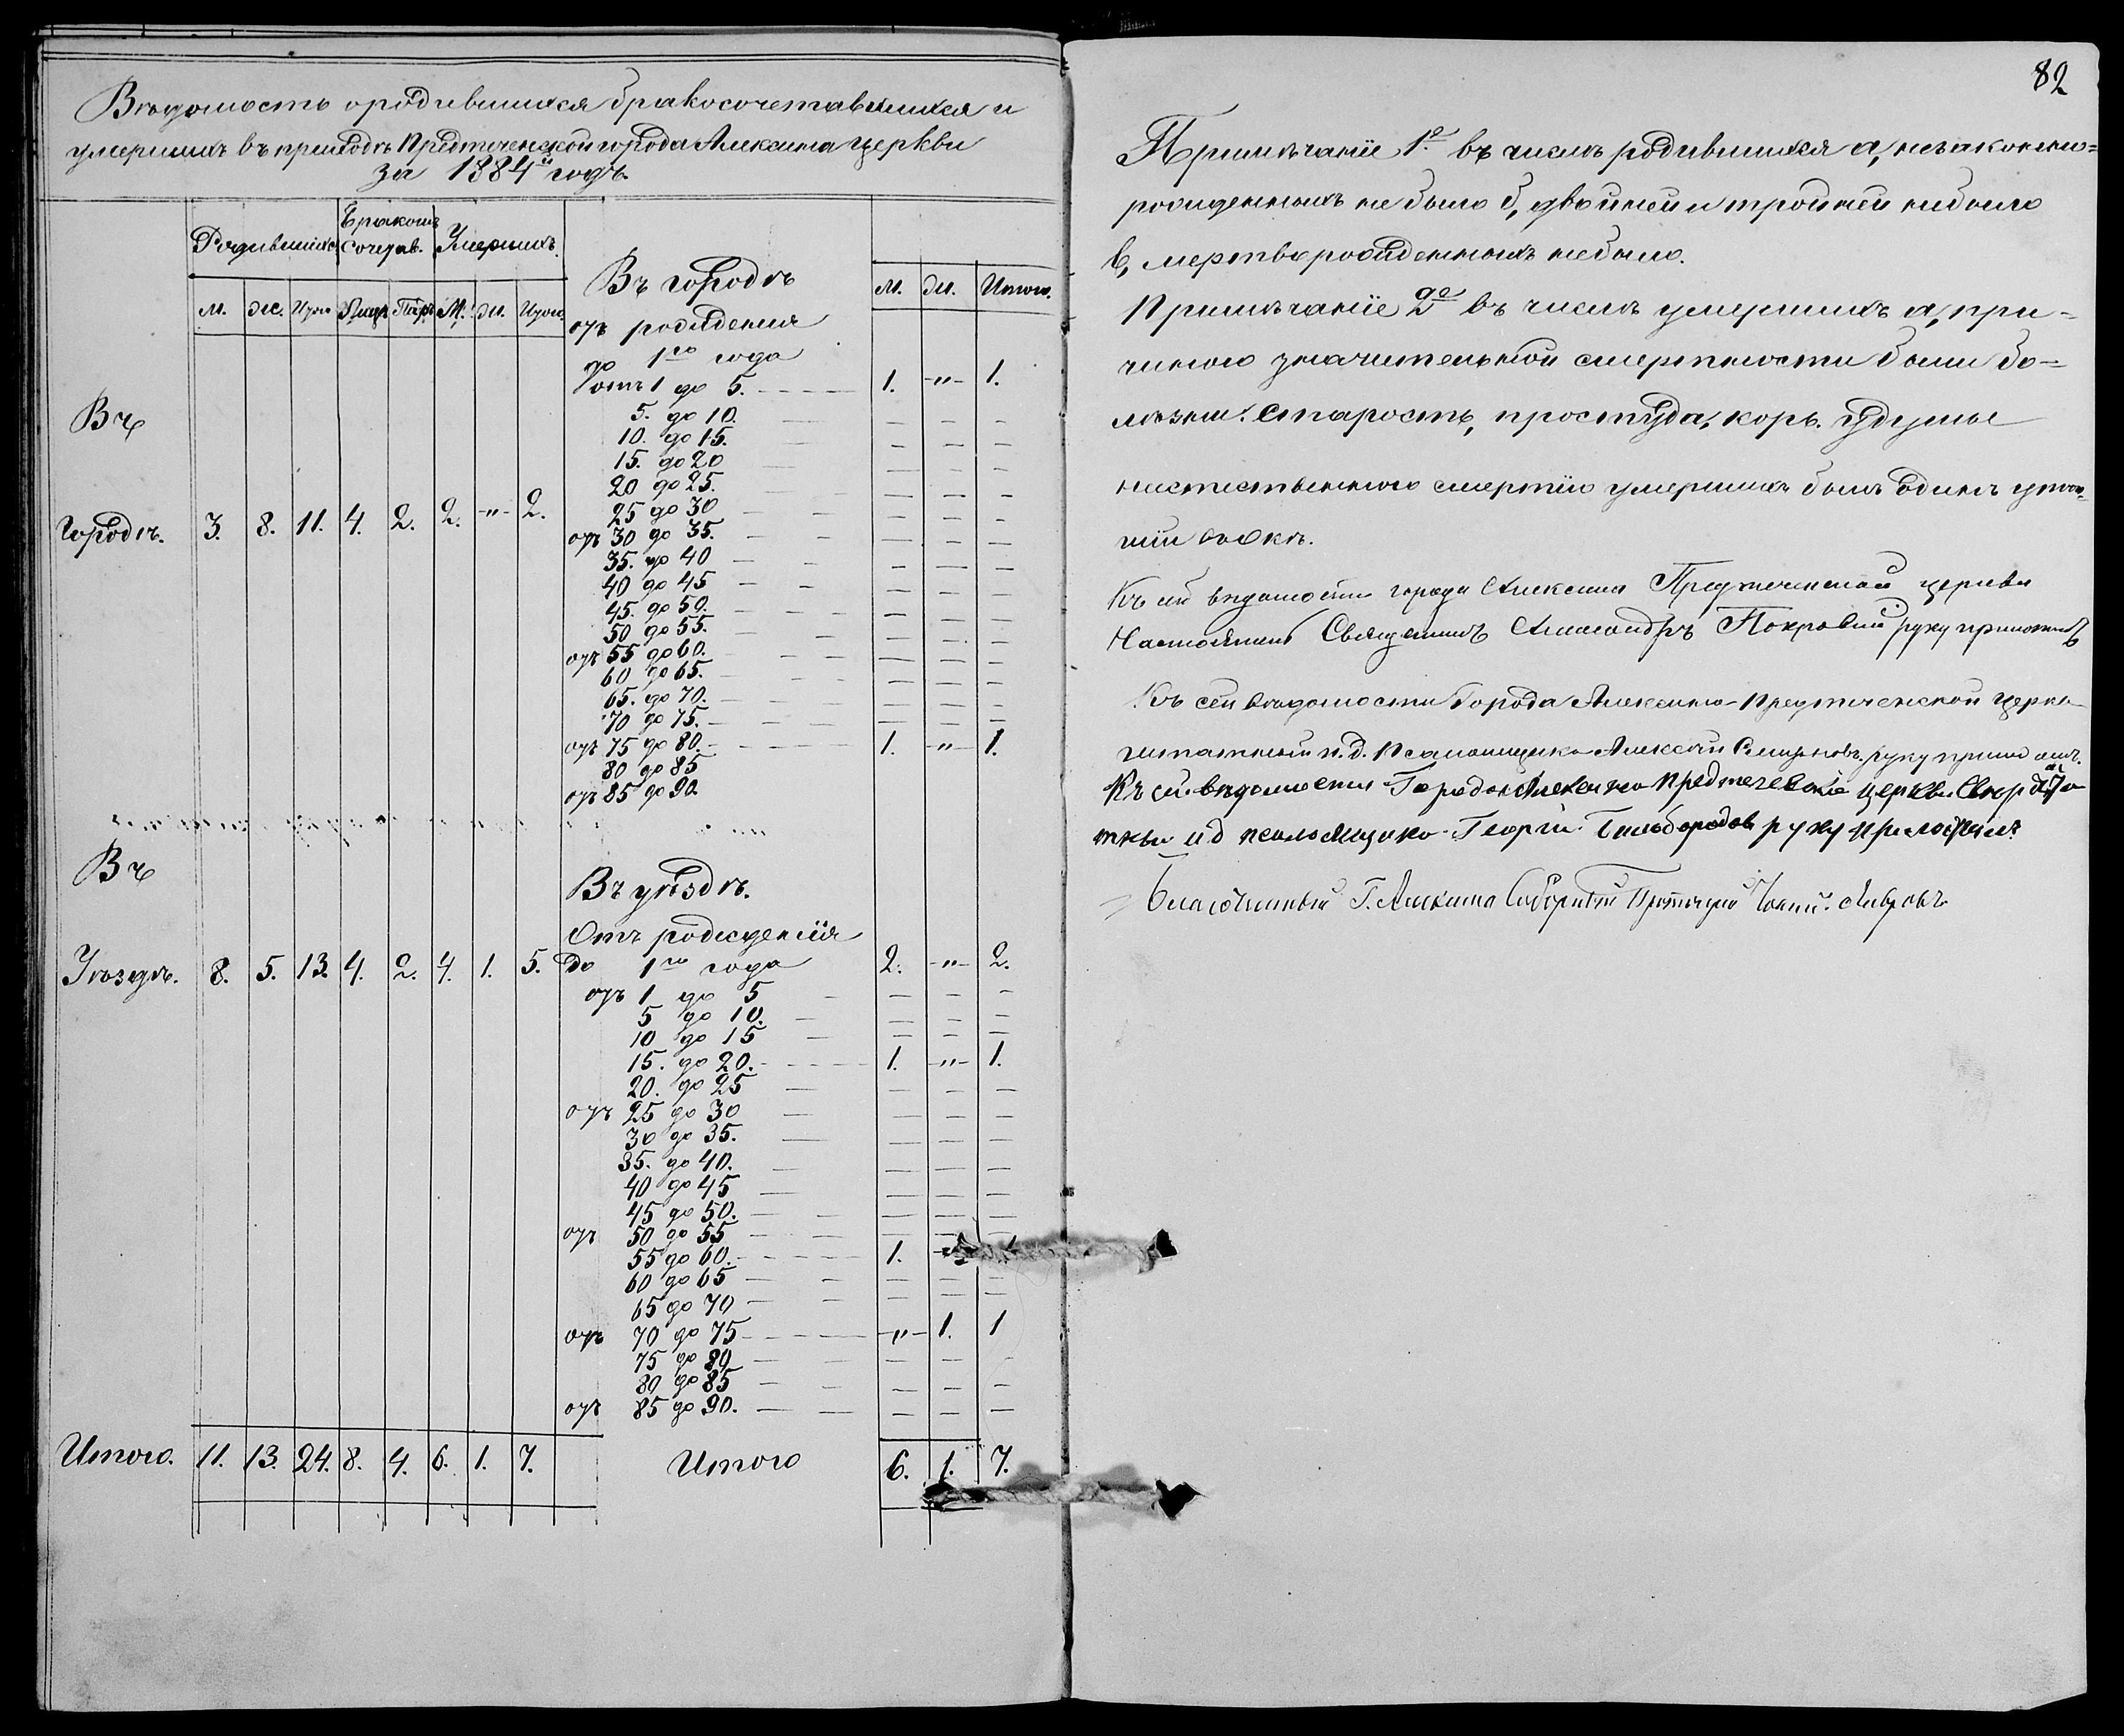 Вѣдомость ородившихся бракосочетавшихся и
умершихъ въ приходѣ Предтеченской города Алексина церкви
за 1884й годъ.
Родившихся Бракомъ Сочетав. Умершихъ.
м. ж. Итого Лицъ Паръ М. ж. Итого.
Въ городѣ
м. ж. Итого.
отъ рождения
до 1го года
отъ 1 до 5. 1. -"- 1.
5. до 10. — — —
10. до 15. — — —
15. до 20 — — —
20 до 25. — — —
25 до 30 — — —
Въ
Городѣ. 3. 8. 11. 4. 2. 2. -"- 2.
отъ 30 до 35. — — —
35. до 40 — — —
40 до 45 — — —
45. до 50. — — —
50 до 55. — — —
отъ 55 до 60. — — —
60 до 65. — — —
65. до 70. — — —
70 до 75. — — —
отъ 75 до 80. 1. -"- 1.
80 до 85
отъ 85 до 90.
Въ уѣздѣ.
Отъ рожденія
Въ
Уѣздѣ. 8. 5. 13. 4. 2. 4. 1. 5.
До 1го года 2. -"- 2.
отъ 1 до 5 — — —
5 до 10. — — —
10 до 15 — — —
15. до 20. 1. -"- 1.
20. до 25 — — —
отъ 25 до 30 — — —
30 до 35. — — —
35. до 40. — — —
40 до 45 — — —
45 до 50. — — —
отъ 50 до 55 — — —
55 до 60. 1.
60 до 65 — — —
65 до 70 — — —
отъ 70 до 75 -"- 1. 1
75 до 80 — — —
80 до 85 — — —
отъ 85 до 90. — — —
Итого. 11. 13. 24. 8. 4. 6. 1. 7. Итого 6. 1. 7.
82
Примѣчаніе 1е въ числѣ родившихся а, незаконно=
рожденныхъ не было б, двойней и тройней небыло
в, мертворожденныхъ небыло.
Примѣчаніе 2ое въ числѣ умершихъ а, при=
чиною значительной смертности были бо=
лѣзни: Старость, простуда, корь. удушье
неестественною смертію умершихъ былъ одинъ утоп-
шій въ Окѣ.
Къ сей вѣдомости города Алексина Предтеченской церкви
Настоятель Священникъ Александръ Покровский руку приложилъ
Къ сей вѣдомости Города Алексина Предтеченской церкви
штатный и.д. Псаломщика Алексѣй руку приложилъ.
Къ сей вѣдомости Города Алексина Предтеческой церкви Сверхшта
тный и д псаломщика Георгій Белобородов руку приложилъ
Благочинный Г. Алексина Соборный Протоіерей